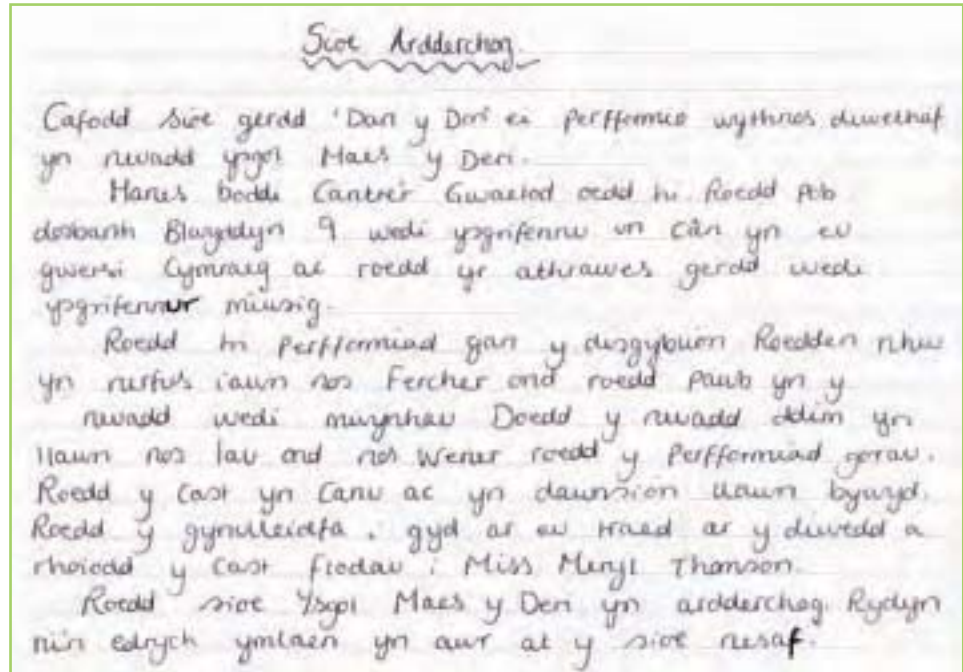 Sioe Ardderchog.
Cafodd sioe gerdd 'Dan y Deri' ei perfformio wythnos diwethaf
yn neuadd ysgol Maes y Deri.
Hanes boddi Cantre'r Gwaelod oedd hi. Roedd pob
dosbarth Blwyddyn 9 wedi ysgrifennu un cân yn eu
gwersi Cymraeg ac roedd yr athrawes gerdd wedi
ysgrifennu'r miwsig.
Roedd tri perfformiad gan y disgyblion. Roedden nhw
yn nerfus iawn nos Fercher ond roedd pawb yn y
neuadd wedi mwynhau. Doedd y neuadd ddim yn
llawn nos Iau ond nos Wener roedd y perfformiad gorau.
Roedd y cast yn canu ac yn dawnsio'n llawn bywyd.
Roedd y gynulleidfa i gyd ar eu traed ar y diwedd a
rhoiodd y cast flodau i Miss Meryl Thomson.
Roedd sioe Ysgol Maes y Deri yn ardderchog. Rydyn
ni'n edrych ymlaen yn awr at y sioe nesaf.